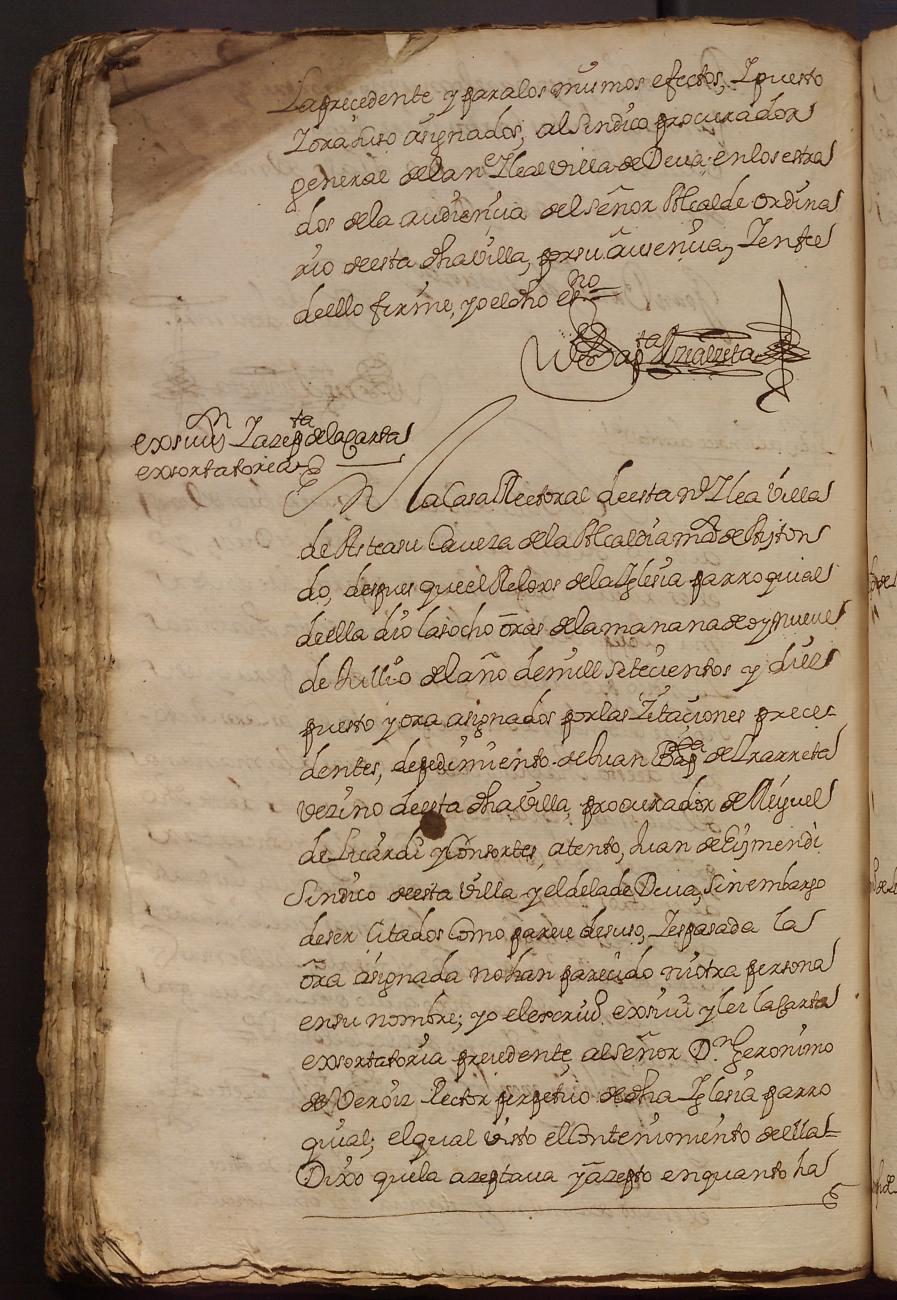 La precedente y para los mismos efectos, Y puesto
Y ora suso asignados, al Sindico procurador
general de la nᵉ Y leal villa de Deva en los estra
dos de la audiençia del Señor Alcalde ordina
rio de esta dha villa, por su aussençia, Y en fee
de ello firme, yo el dho essno
Bapta
exsivⁿ Y azepta de la Carta
exsortatoria
En la Casa Rectoral de esta nᵉ Y leal villa
de Asteasu Caveza de la Alcaldia mᵒʳ de Aiston
do, despues que el Relox de la Iglesia parroquial
de ella dio las ocho oras de la manana de oy nueve
de Jullio del año de mill Setecientos y diez
puesto y ora asignados por las Zitaçiones prece-
dentes, de pedimiento de Juan Bapta de Yrarreta
vezino de esta dha villa, procurador de Miguel
de Licardi y Consortes, atento, Juan de Eizmendi
Sindico de esta Villa y el de la de Deva, Sin embargo
de ser Citados Como pareze de suso, Y es pasada la
ora asignada no han pareçido ni otra persona
en su nombre; yo el escrivᵒ exsivi y lei la Carta
exsortatoria precedente, al Señor Dⁿ Geronimo
de Veroiz Rector perpetuo de dha Iglesia parro
quial; el qual visto el Contenimiento de ella
Dixo que la azeptava y azepto en quanto ha